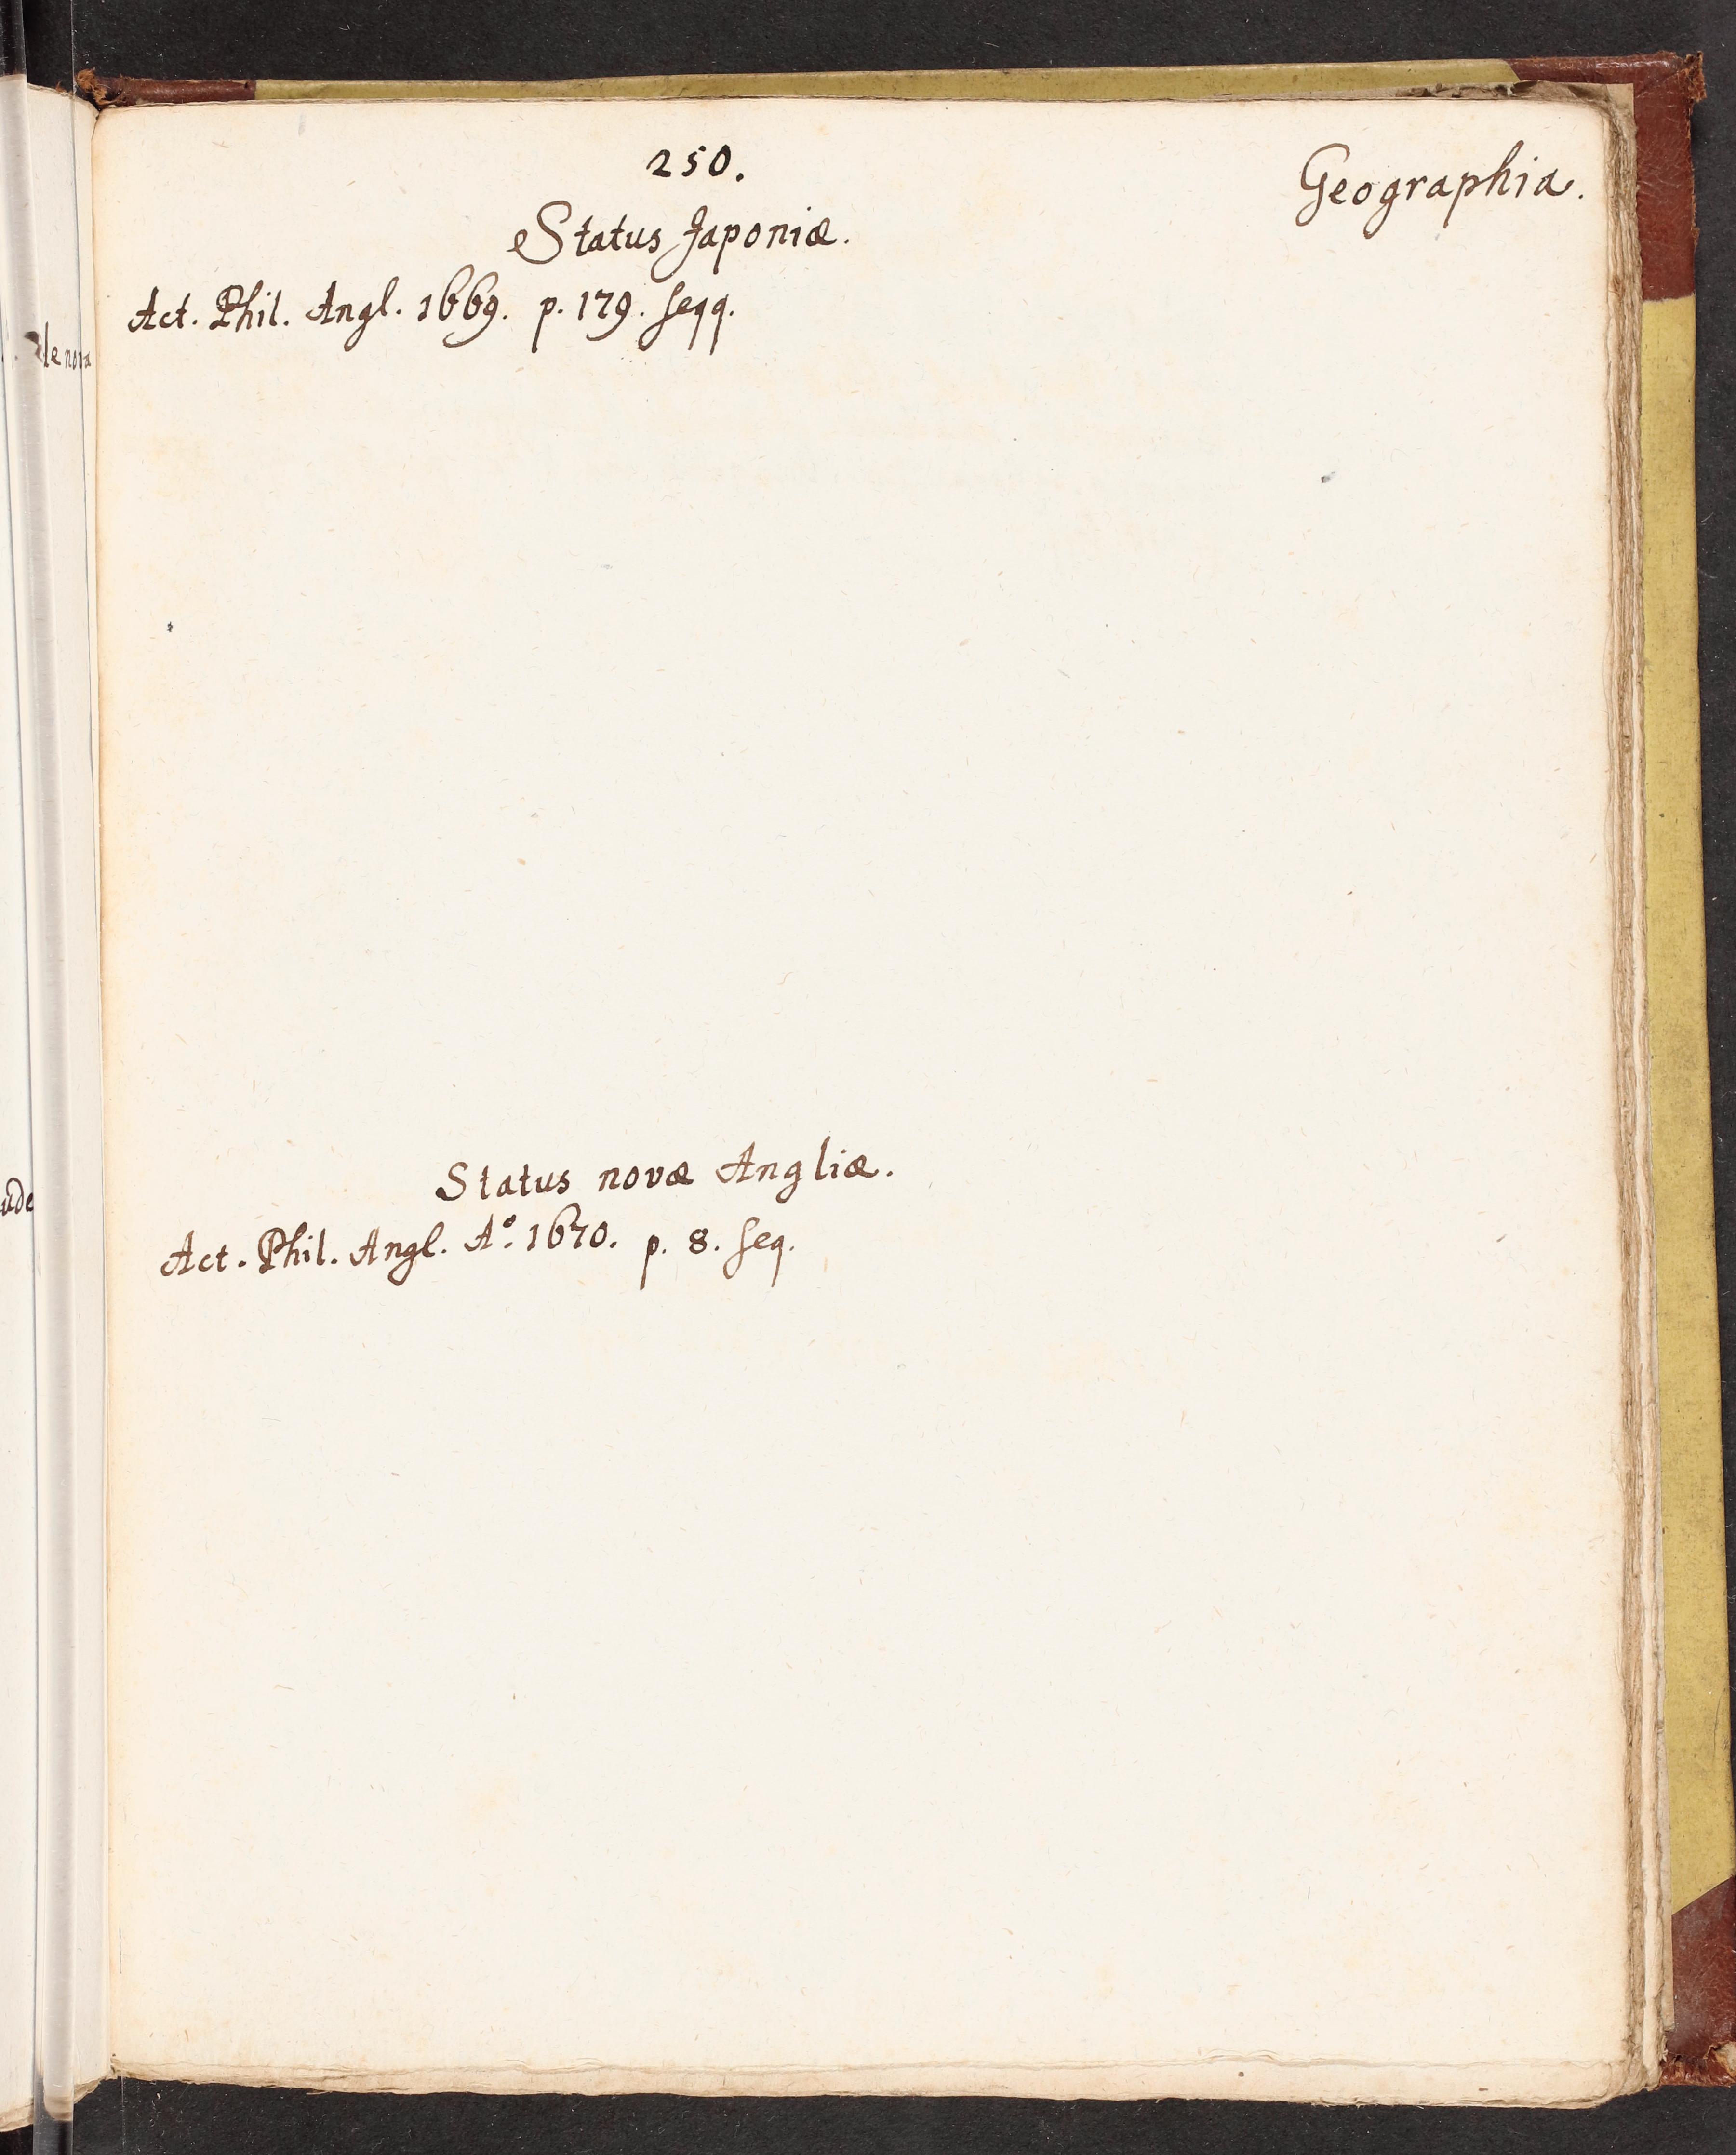 250.
Geographia.
Status Japoniæ.
Act. Phil. Angl. 1669. p. 179. seqq.
Status novæ Angliæ.
Act. Phil. Angl. Aº. 1670. p. 8. seq.